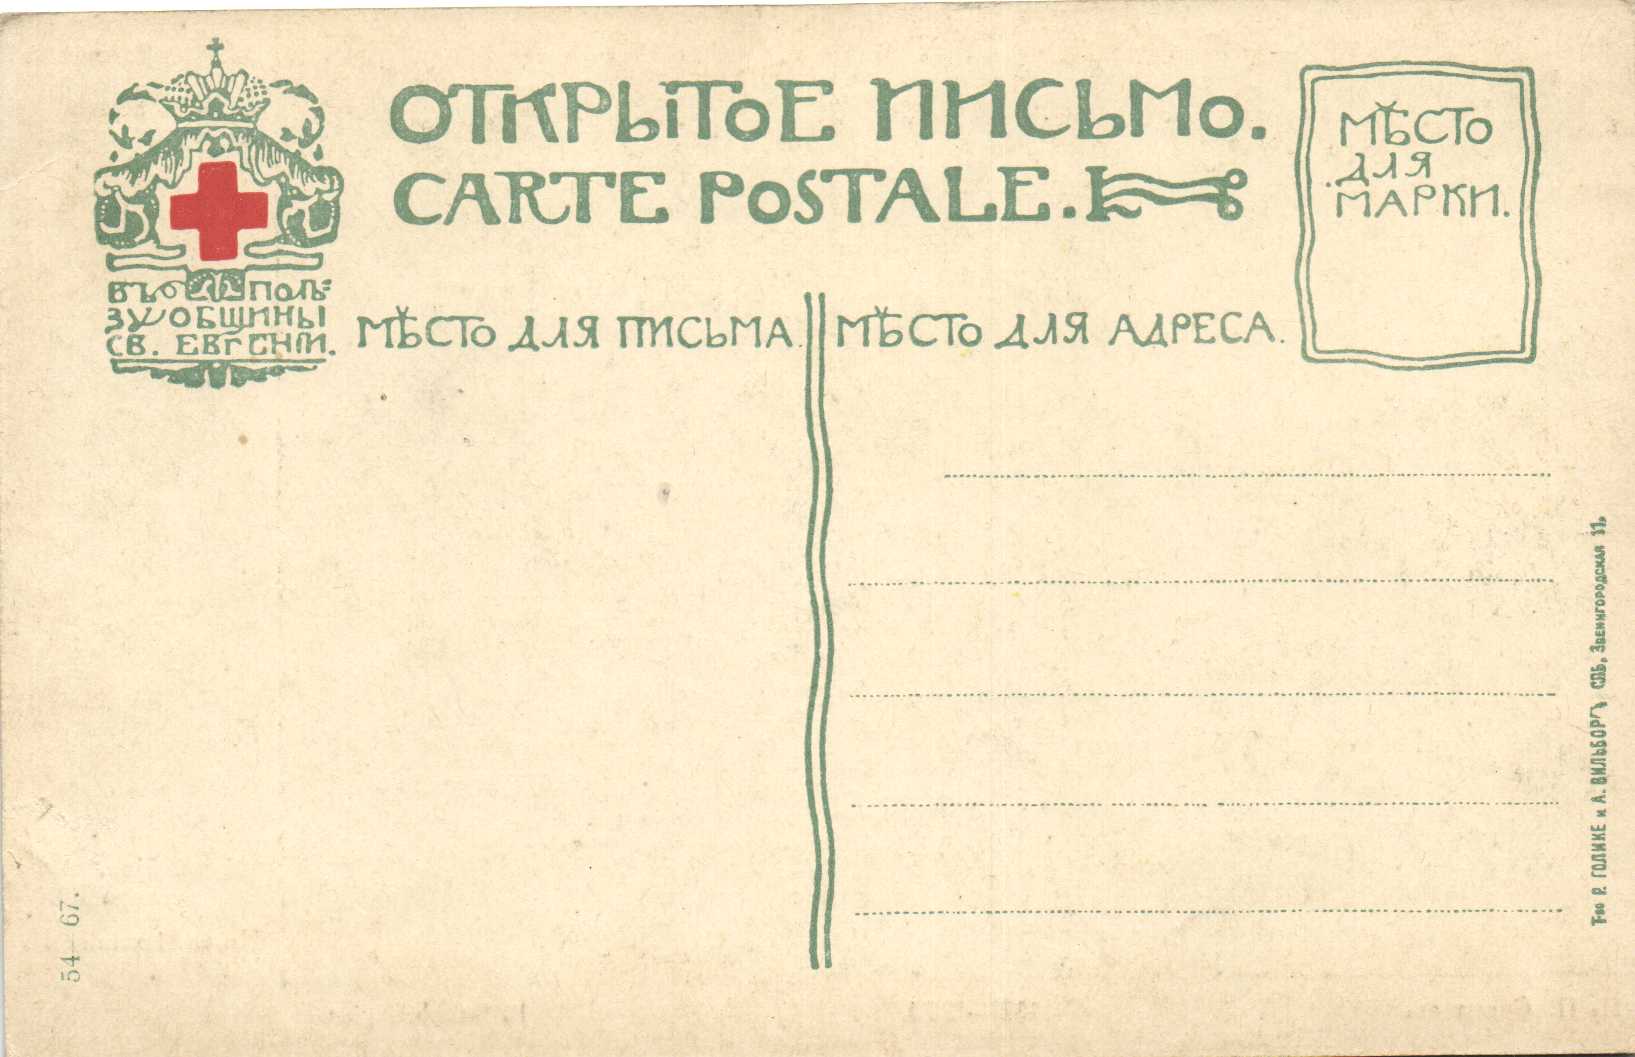 ОТКРЫТОЕ ПИСЬМО.
CARTE POSTALE.
МѢСТО
ДЛЯ
МАРКИ.
ВЪ ПОЛЬ=
ЗУ ОБЩИНЫ
СВ. ЕВГЕНІИ.
МѢСТО ДЛЯ ПИСЬМА.
МѢСТО ДЛЯ АДРЕСА.
54—67.
Т-во Р. ГОЛИКЕ и А. ВИЛЬБОРГЪ, СПБ, Звенигородская 11.